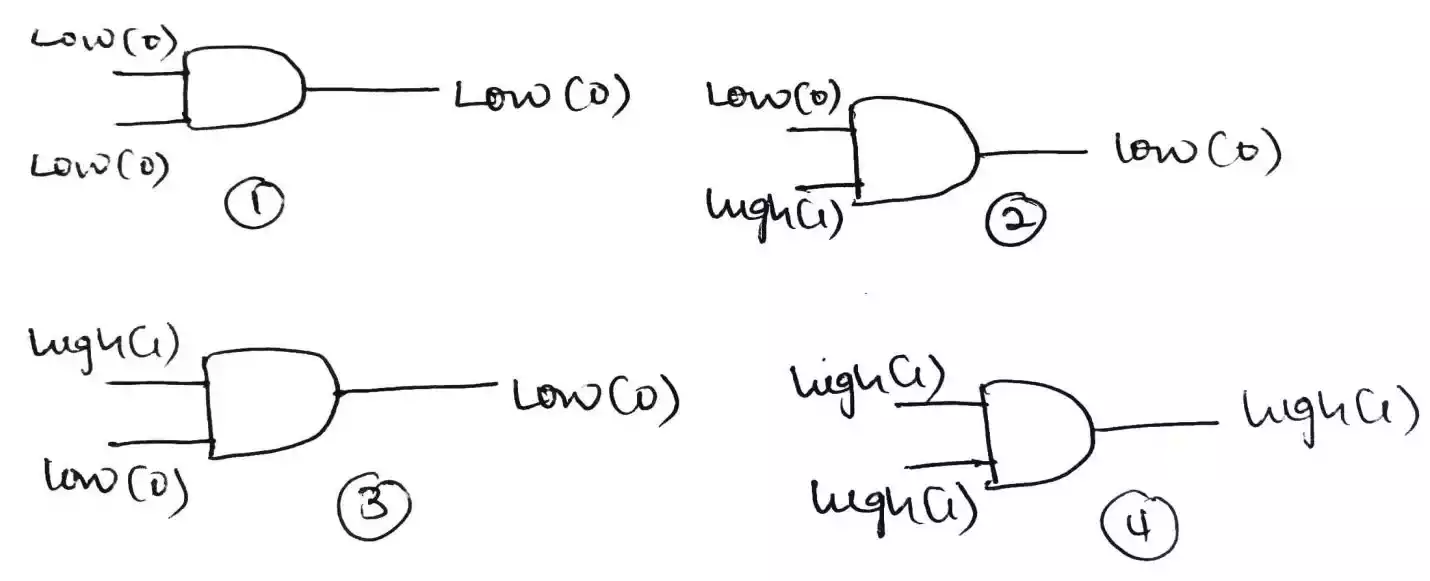 Low(0)
Low(0)
Low(0)
①
Low(0)
high(1)
low(0)
②
high(1)
low(0)
Low(0)
③
high(1)
high(1)
high(1)
④